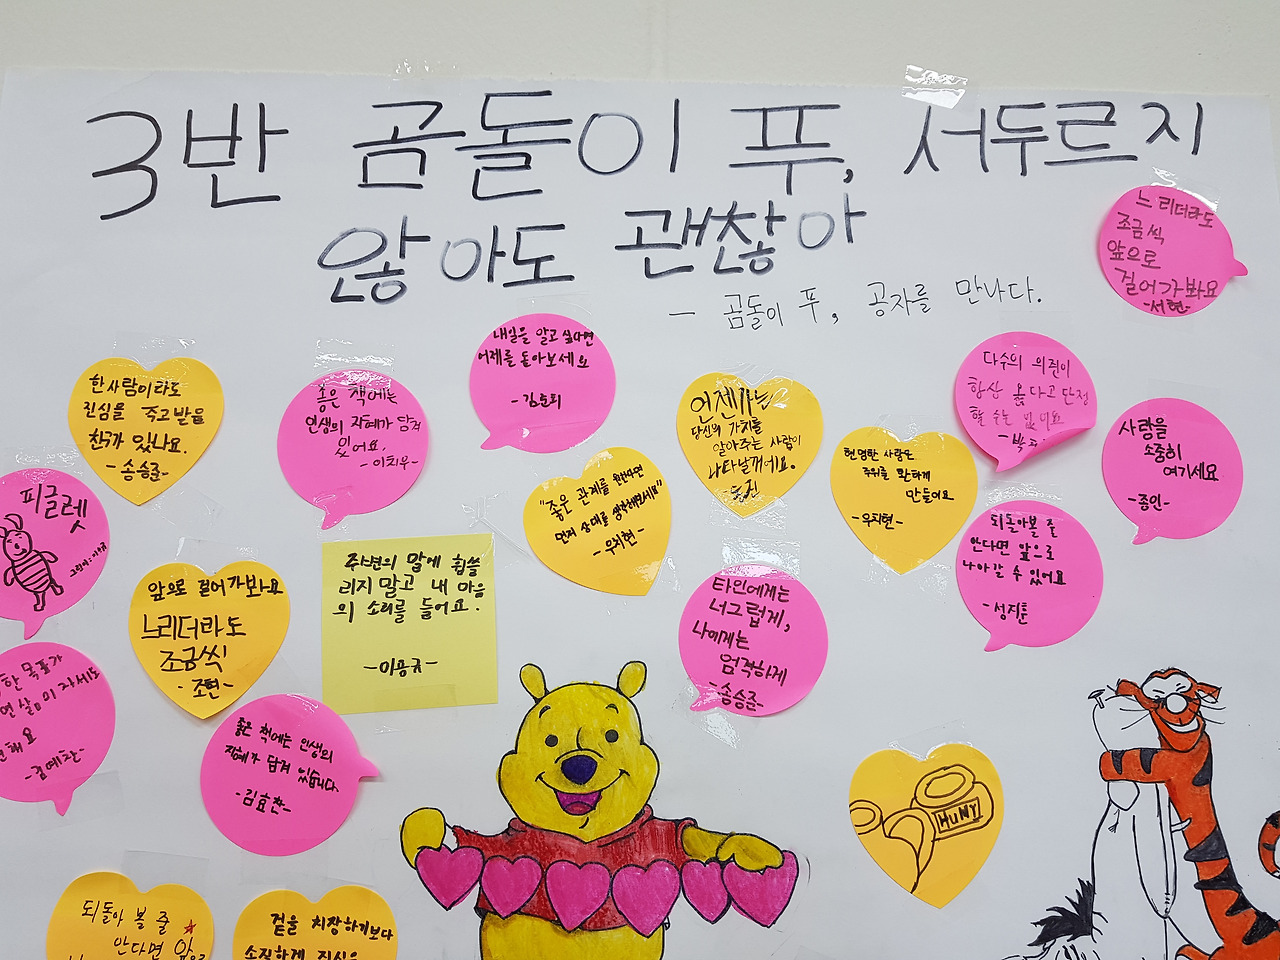 3반 곰돌이 푸, 서두르지
않아도 괜찮아
- 곰돌이 푸, 공자를 만나다.
느리더라도
조금씩
앞으로
걸어가봐요
-서현-
내일을 알고 싶다면
어제를 돌아보세요
한 사람이라도
진심을 주고받을
친구가 있나요.
-송승준-
좋은 책에는
인생의 지혜가 담겨
있어요.
-이치우-
언젠가는
당신의 가치를
알아주는 사람이
나타날거에요.
다수의 의견이
항상 옳다고 단정
할 수는 없어요
사람을
소중히
여기세요
-종인-
"좋은 관계를 원한다면
먼저 상대를 생각해보세요"
-우지현-
현명한 사람은
주위를 환하게
만들어요
-우지현-
피글렛
되돌아볼 줄
안다면 앞으로
나아갈 수 있어요
-성지훈-
주변의 말에 휩쓸
리지 말고 내 마음
의 소리를 들어요.
-이용규-
앞으로 걸어가봐요
느리더라도
조금씩
-조현-
타인에게는
너그럽게,
나에게는
엄격하게
-송승준-
한 목표가
면 삶이 자세도
해요
-김예찬-
좋은 책에는 인생의
지혜가 담겨 있습니다.
-김효찬-
HUNY
되돌아 볼 줄
안다면 앞으로
겉을 치장하기보다
솔직하게 진심을